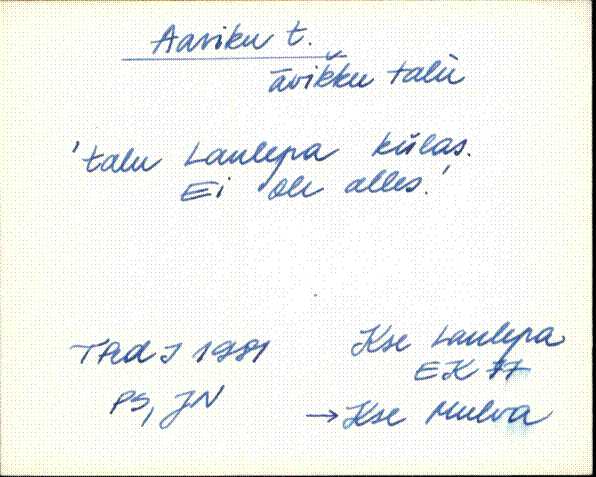 Aaviku t.
āvikku talù
'talu Laulepa külas.
Ei ole alles.'
1981
Kse Laulepa
PS, JN
EK 77
→ Kse Mulva